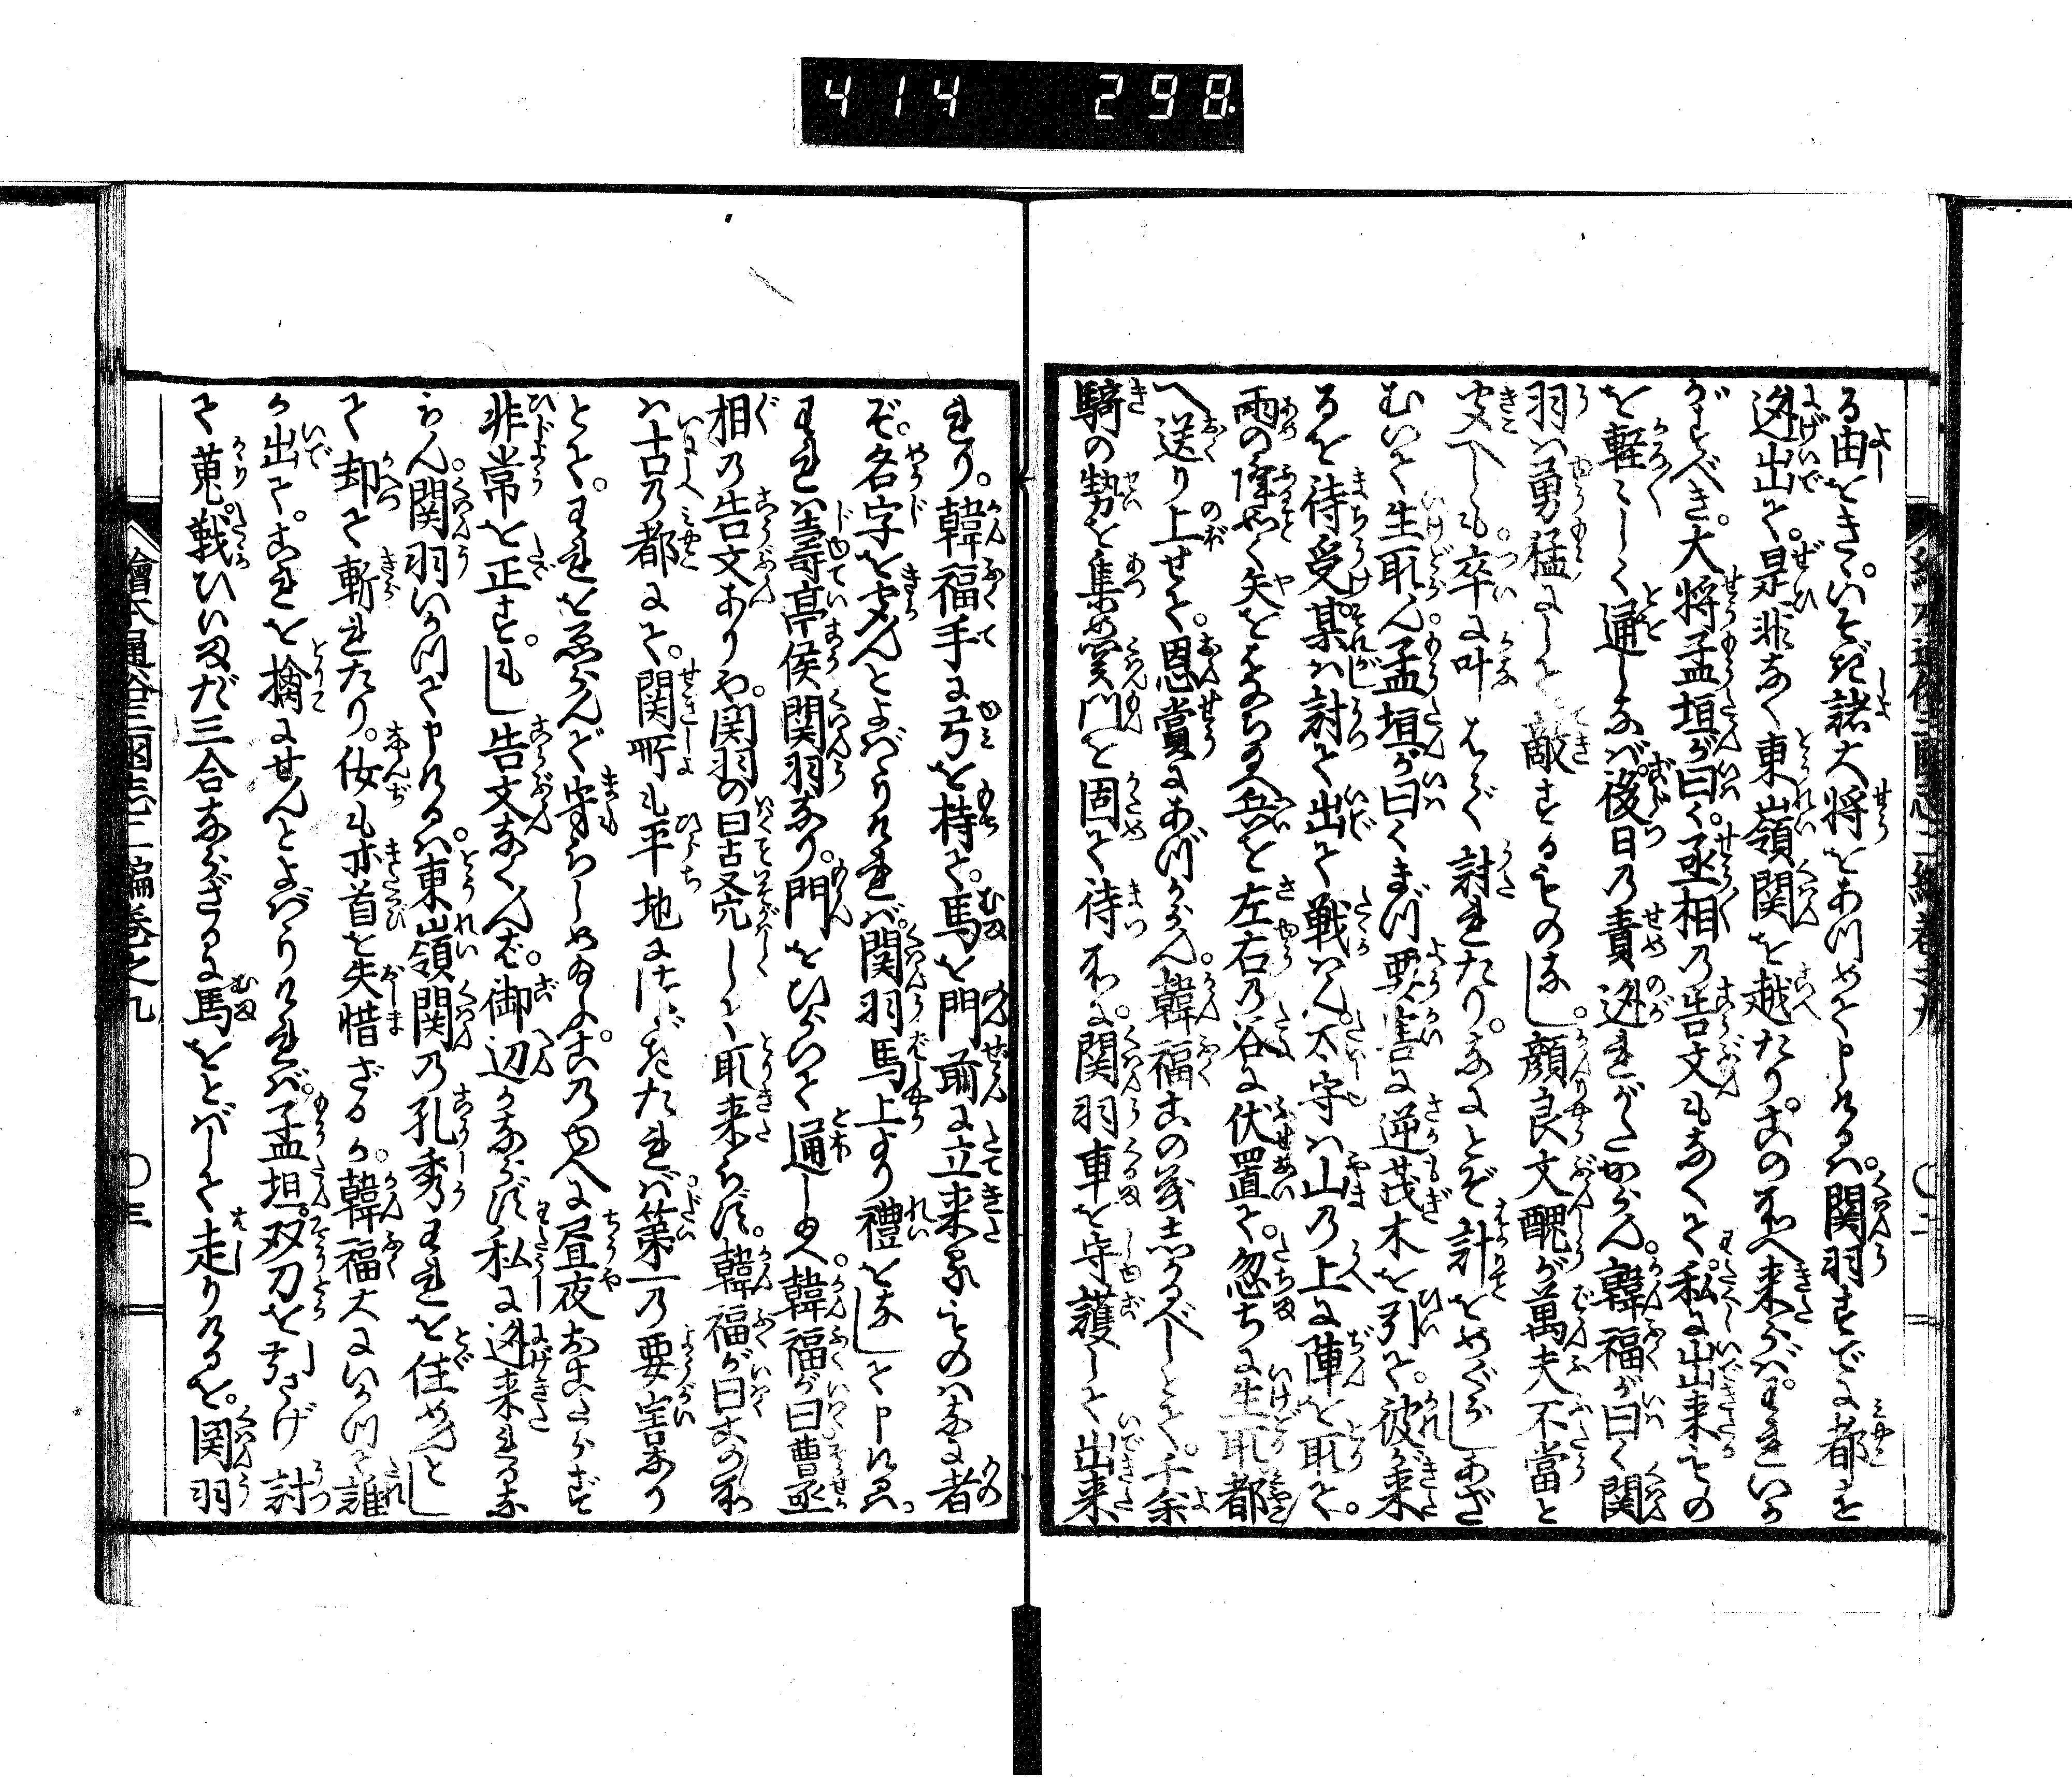 414 298
繪本通俗三國志二編巻之九 〇二
る由をきゝ。いそぎ諸大将をあつめて申けるハ。関羽すでに都を
迯出て。是非なく東嶺関を越たり。この所へ来らバ。われいか
がすべき。大将孟垣が曰く。丞相の告文もなくて。私に出来るもの
を軽〻しく通しなバ。後日の責迯れがたからん。韓福が曰く関
羽ハ勇猛にして敵するものなし。顔良文醜が萬夫不當と
聞へしも。卒に叶はず討れたり。なにとぞ計をめぐらしあざ
むいて生取ん。孟垣が曰くまづ要害に逆茂木を引て。彼が来
るを待受。某ハ討て出て戦ハん。太守ハ山の上に陣を取て。
雨の降如く矢をはなち又兵を左右の谷に伏置て。忽ちに生取都
へ送り上せて。恩賞にあづからん。韓福この義志かるべしとて。千余
騎の勢を集め関門を固て待所に。関羽車を守護して出来
れり。韓福手に弓を持て。馬を門前に立来るものハなに者
ぞ。名字を聞んとよバりけれバ。関羽馬上より禮をなして申けるハ。
われハ壽亭侯関羽なり。門をひらいて通しめよ。韓福が曰曹丞
相の告文ありや。関羽の曰古又冗しくて取来らず。韓福が曰この所
ハ古の都にて。関所も平地にはだたれバ。第一の要害なり
とて。われを怠らんど守らしめ給ふ。この内に昼夜おこたらず
非常を正すに。もし告文なくんバ。御辺かならず私に迯来れるな
らん。関羽いかつて申けるハ。東嶺関の孔秀われを住めんとし
て却て斬れたり。汝も亦首を失惜ざるか。韓福大にいかつて誰
か出て。これを擒にせんとよバりけれバ。孟坦。双刀を引さげ討
て蒐。戦ひいまだ三合ならざるに馬をとバして走りけるを。関羽
繪本通俗三國志二編巻之九 〇三